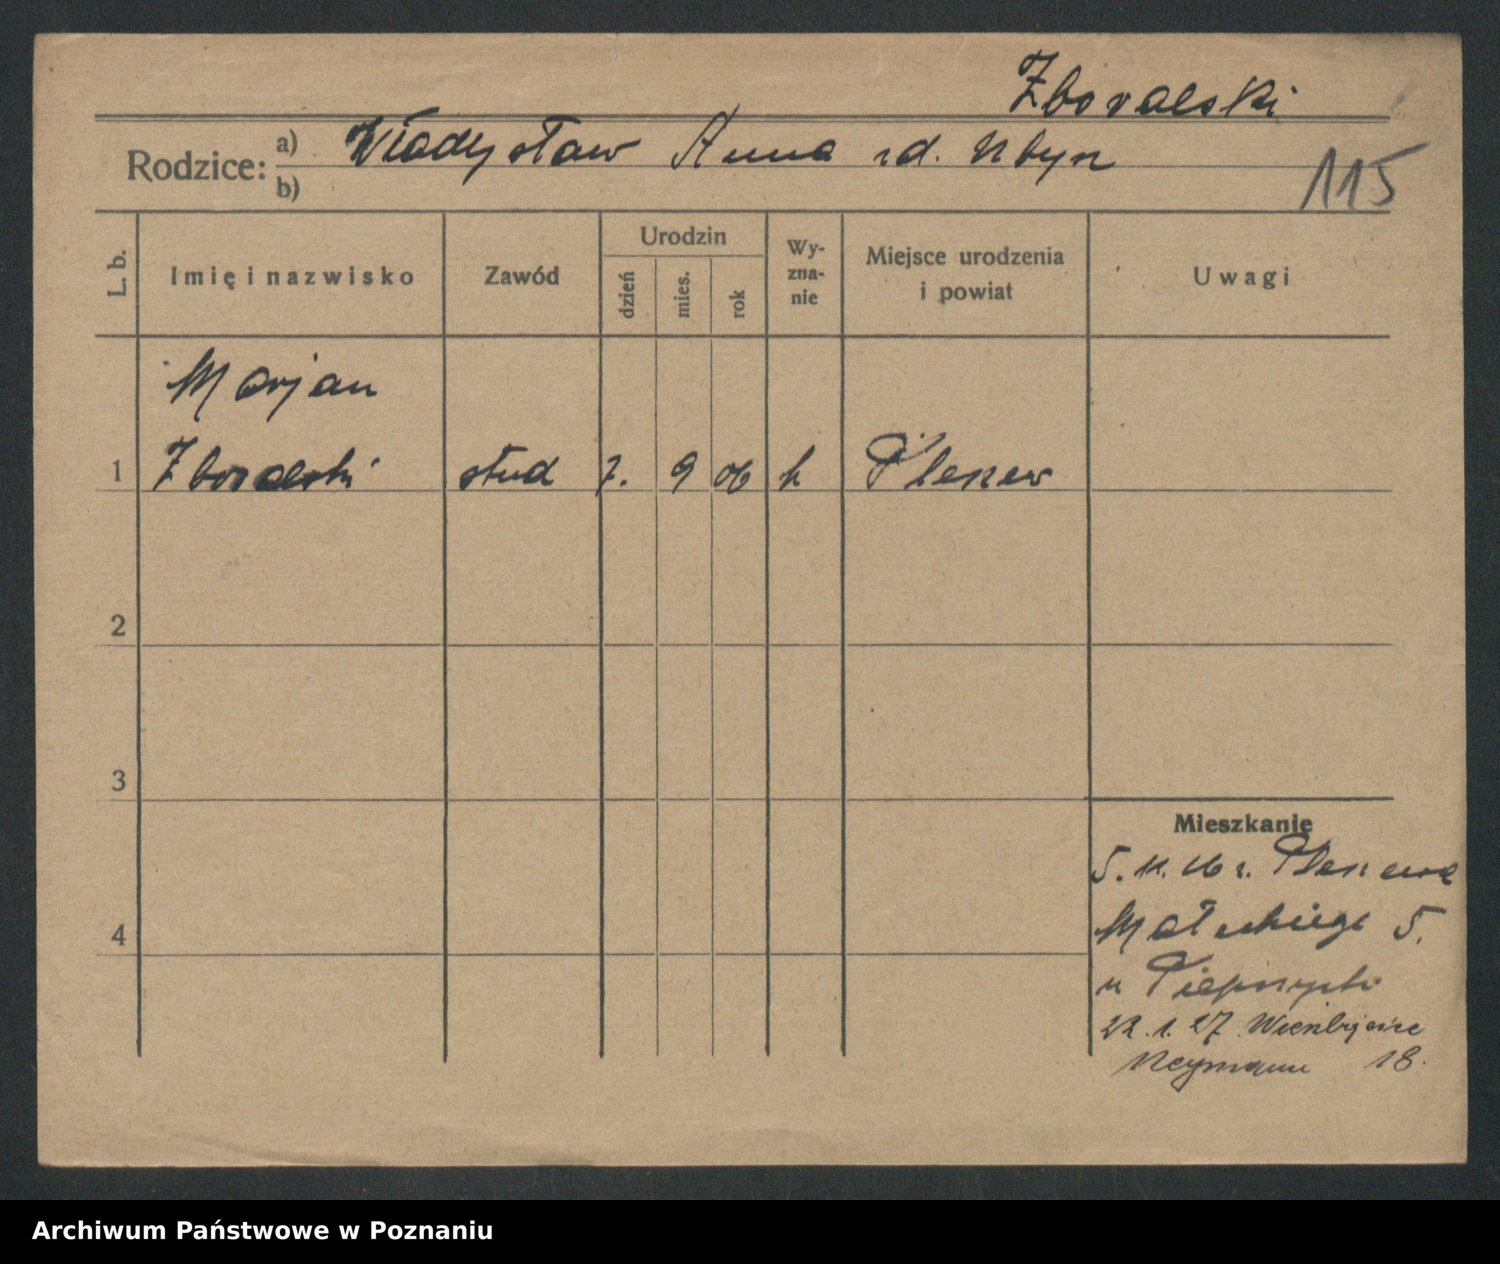 Zboralski
Rodzice: a) Władysław Anna rd. Ubyn
b)
115
L. b.
Imię i nazwisko
Zawód
Urodzin
dzień
mies.
rok
Wy-
zna-
nie
Miejsce urodzenia
i powiat
Uwagi
Marjan
1 Zboralski stud 7. 9 06 k Pleszew
2
3
4
Mieszkanie
5. 11. 26 z. Pleszewa
Małeckiego 5.
u
22. 1. 27
Neymann 18.
Archiwum Państwowe w Poznaniu